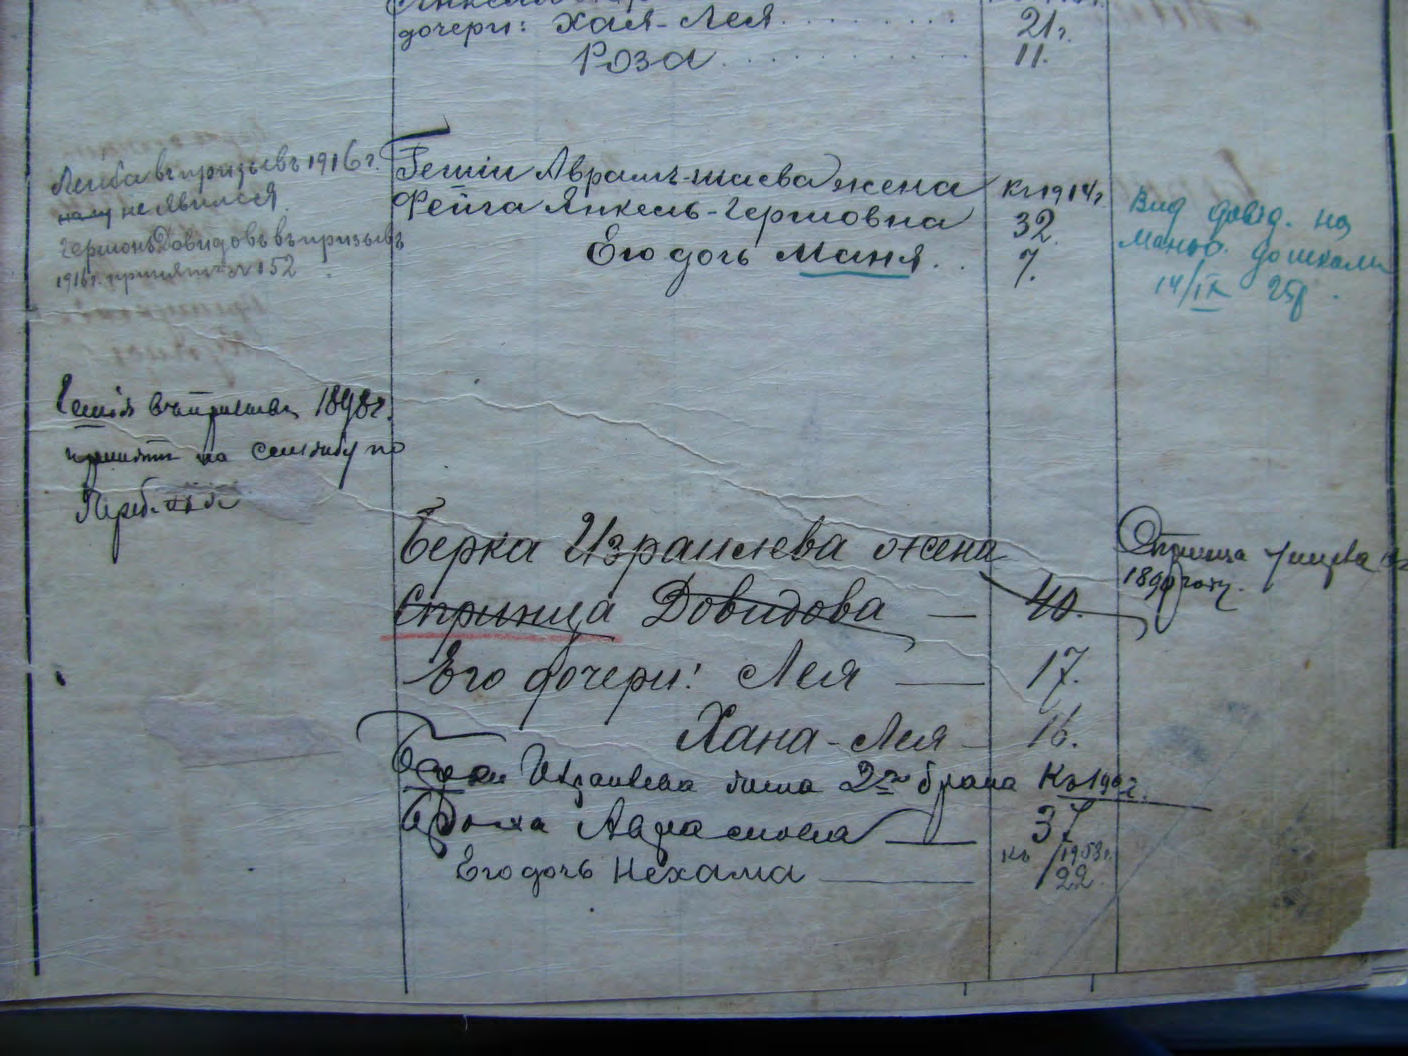 дочери: Хая-Лея 21 г.
Роза 11.
Лейба въ призывъ 1916 г.
не явился
Гершонъ Довидовъ въ призывъ
1916 г. принятъ № 152
Гешіи Аврамъ-шаева жена къ 1914 г
Фейга Янкель-Гершовна 32.
Его дочь Маня. 7.
Вид довид. на
Маньо.
14/IX 25р.
Гешія въ призывъ 1898 г.
принятъ на службу по
Берка Израилева жена
Сприица Довидова — 40.
Его дочери: Лея — 17.
Хана-Лея — 16.
Сприица
1890 году.
Израилева жена 2го брака Къ 190 г.
Аврамовна — 37
Его дочь Нехама — къ 1903 г. 22.